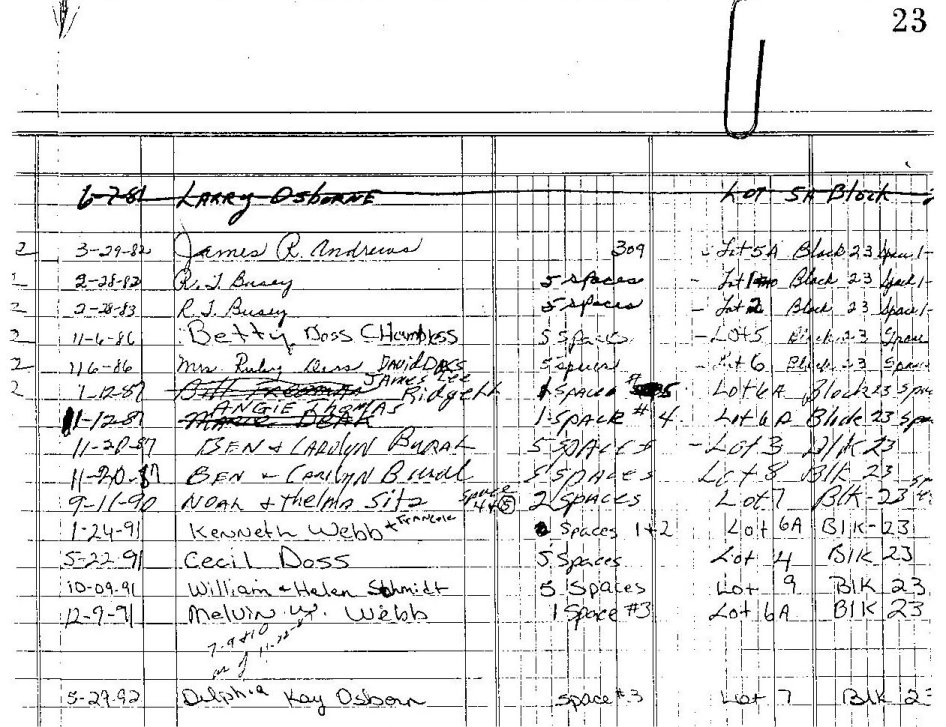 23
6-7-81 LARRY OSBORNE Lot 5A Block
2 3-29-82 James R. Andrews 309 - Lot 5A Block 23 Space 1-
2-28-83 R. J. Busey 5 spaces - Lot Block 23 Space 1-
2 2-28-83 R. J. Busey 5 spaces - Lot 2 Block 23 Space 1-
2 11-6-86 Betty Doss 5 Spaces - Lot 5 Block 23 Space
2 11-6-86 Mrs. Ruby Doss DAVID DOSS 5 spaces - Lot 6 Block 23 Space
2 1-12-87 Bill Freeman JAMES Lee Ridgell 1 Space # 5 Lot 6A Block 23 Spa
11-12-87 ANGIE THOMAS 1 SPACE # 4 Lot 6A Block 23 Spa
11-20-87 BEN & CAROLYN 5 SPACES - Lot 3 Blk 23
11-20-87 BEN & CAROLYN 5 SPACES Lot 8 Blk 23
9-11-90 NOAH & Thelma Sitz Space 4+5 2 Spaces Lot 7 Blk-23
1-24-91 Kenneth Webb + Francie Spaces 1+2 Lot 6A Blk-23
5-22-91 Cecil Doss 5 Spaces Lot 4 Blk 23
10-09-91 William & Helen Schmidt 5 Spaces Lot 9 Blk 23
12-9-91 Melvin W. Webb 1 Space #3 Lot 6A Blk 23
7-9 & 10
as of
5-29-92 Delphia Kay Osborn space #3 Lot 7 Blk 23